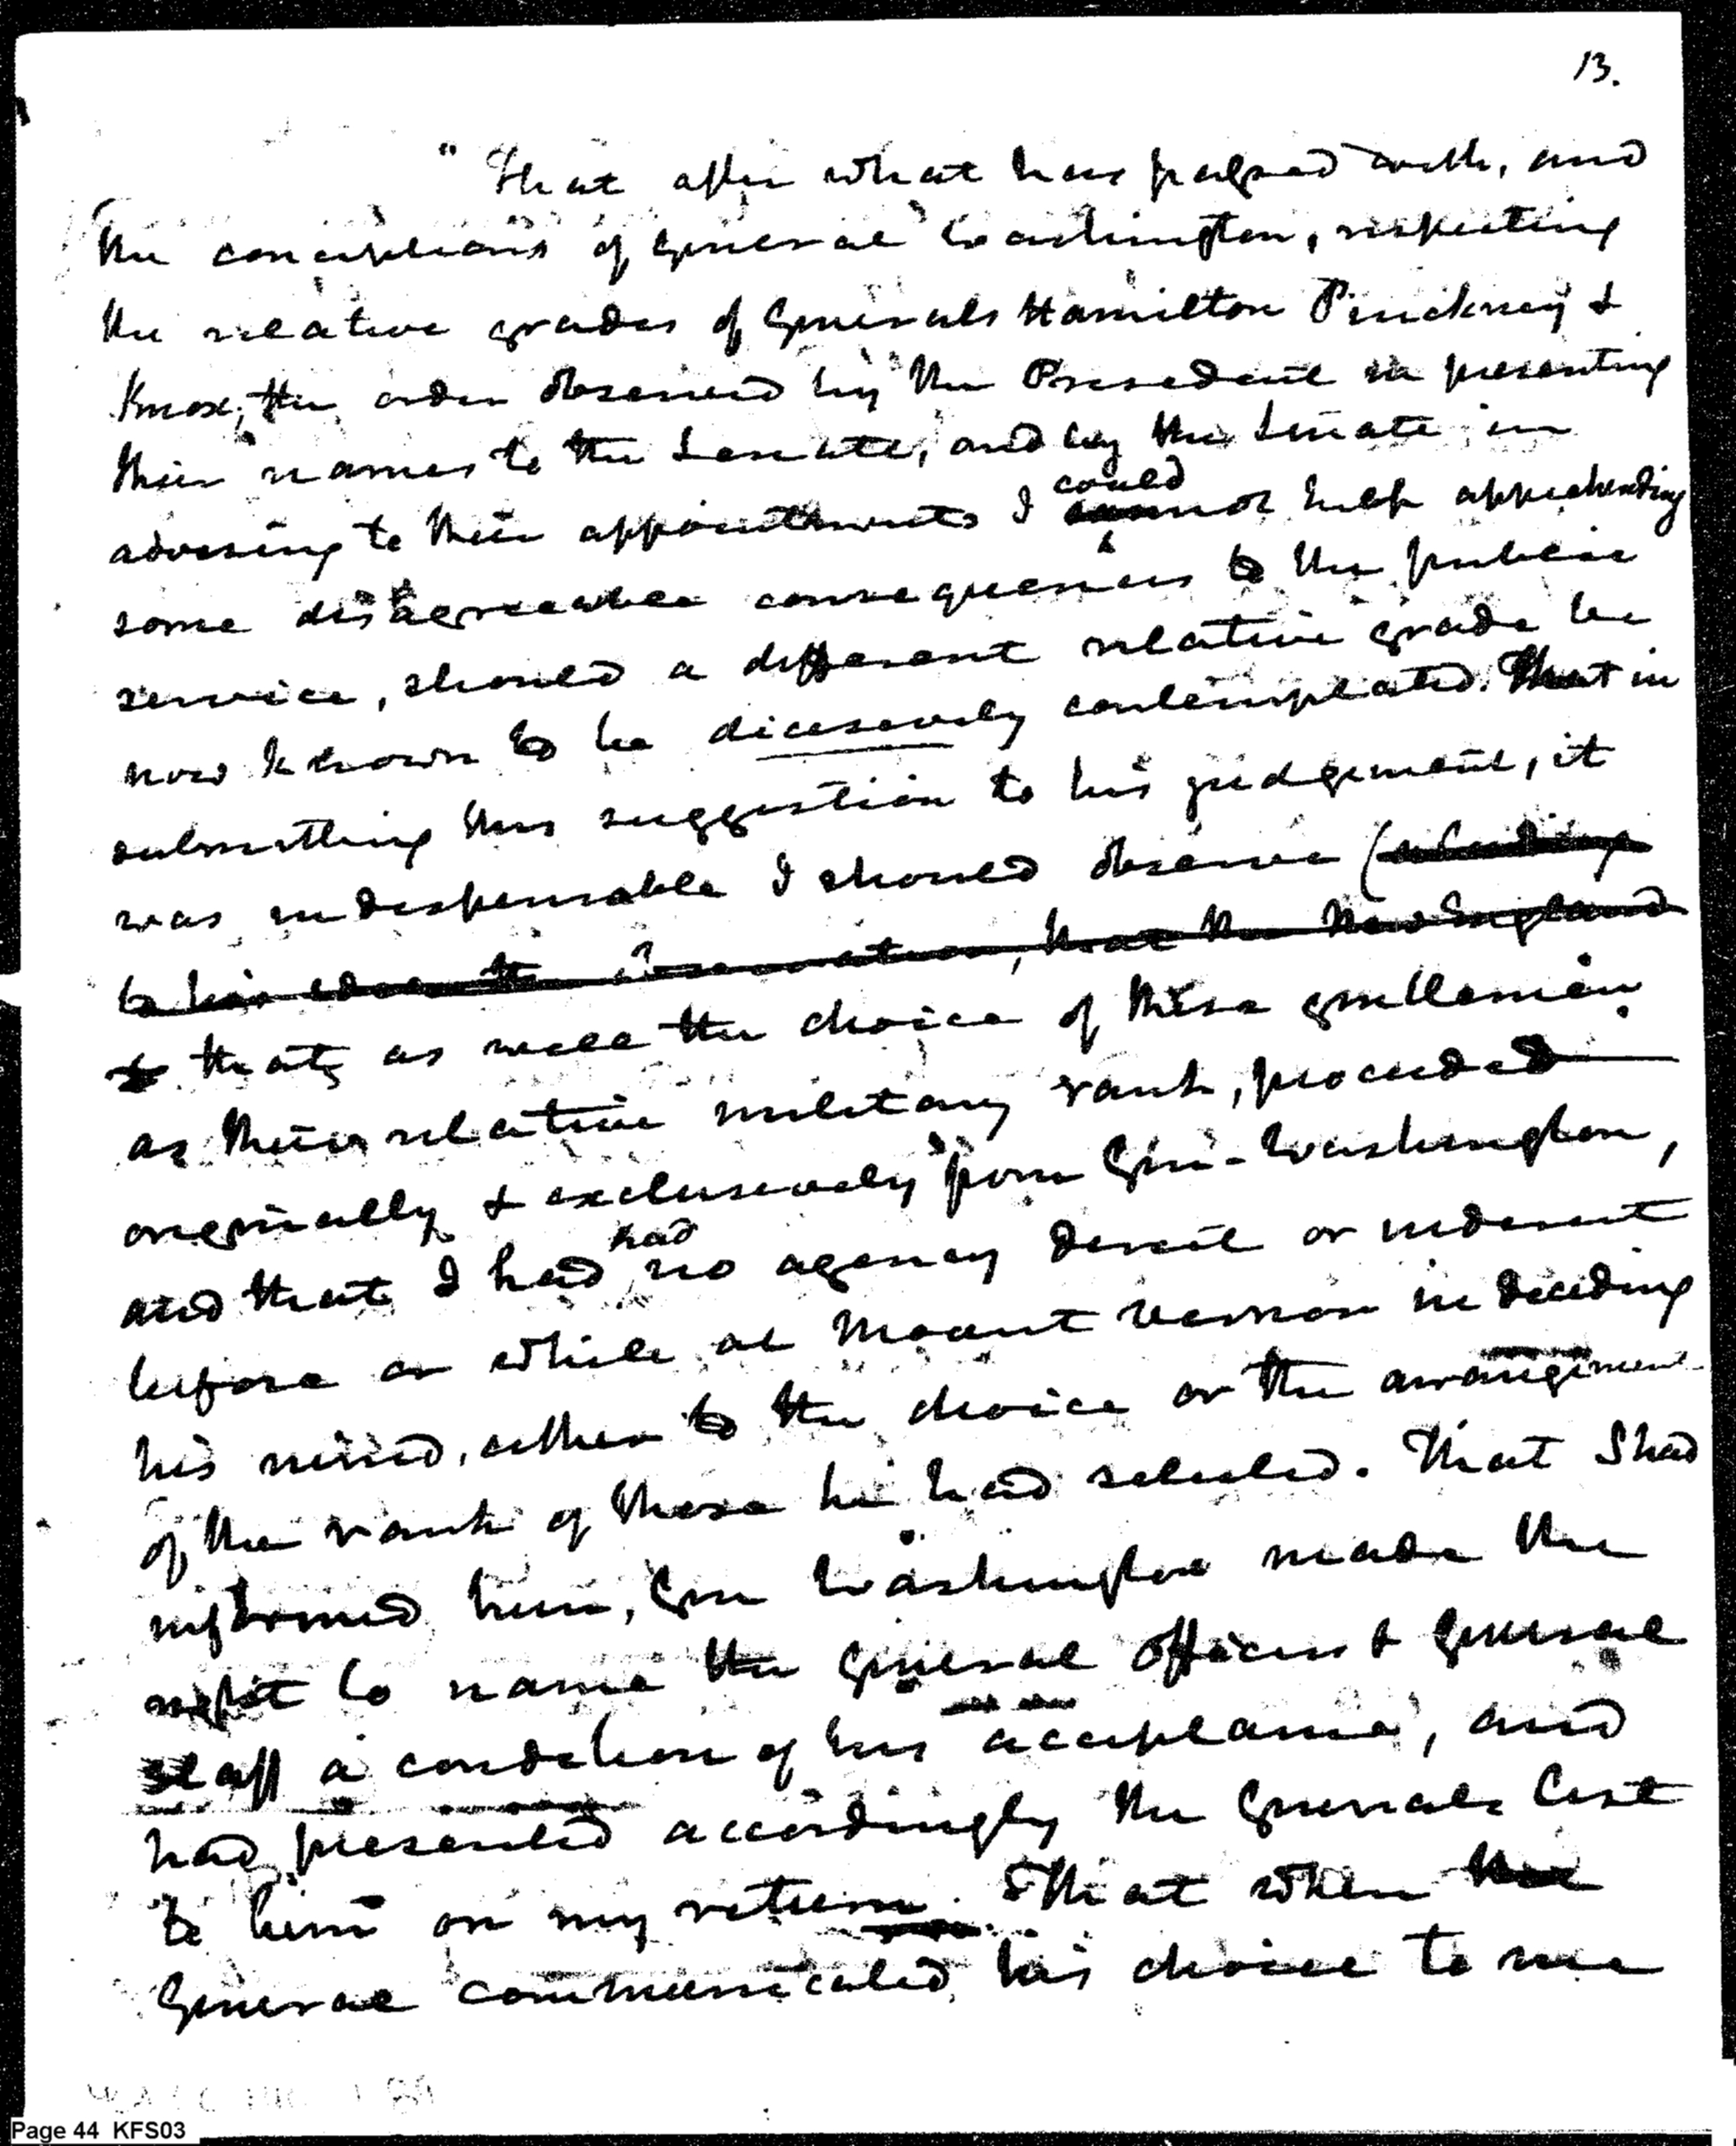 13.
" That after what has passed with, and
the conceptions of General Washington, respecting
the relative grades of Generals Hamilton Pinckney &
Knox, the order observed by the President in presenting
their names to the Senate, and by the Senate in
could
advising to their appointments I cannot help apprehending
some disagreeable consequences to the public
service, should a different relative grade be
now known to be decisively contemplated. That in
submitting this suggestion to his judgement, it
was indispensable I should observe (
to his observation, that the New England
& that, as well the choice of these gentlemen
as their relative military rank, proceeded
originally & exclusively from Gen. Washington,
had
and that I had no agency direct or indirect
before or while at Mount Vernon in deciding
his mind, either to the choice or the arrangement
of the rank of those he had selected. That I had
informed him, Gen Washington made the
right to name the general officers & general
staff a condition of his acceptance, and
had presented accordingly the Generals List
to him on my return. That when the
General communicated his choice to me
Page 44 KFS03